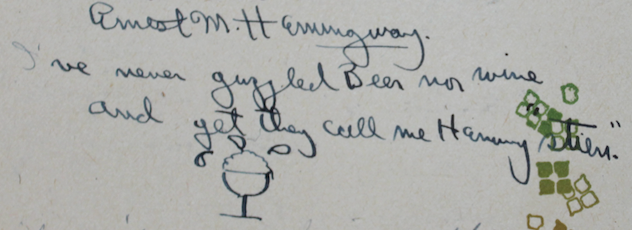 Ernest M. Hemingway.
I've never guzzled Beer nor wine
and yet they call me Hemmy "stien."